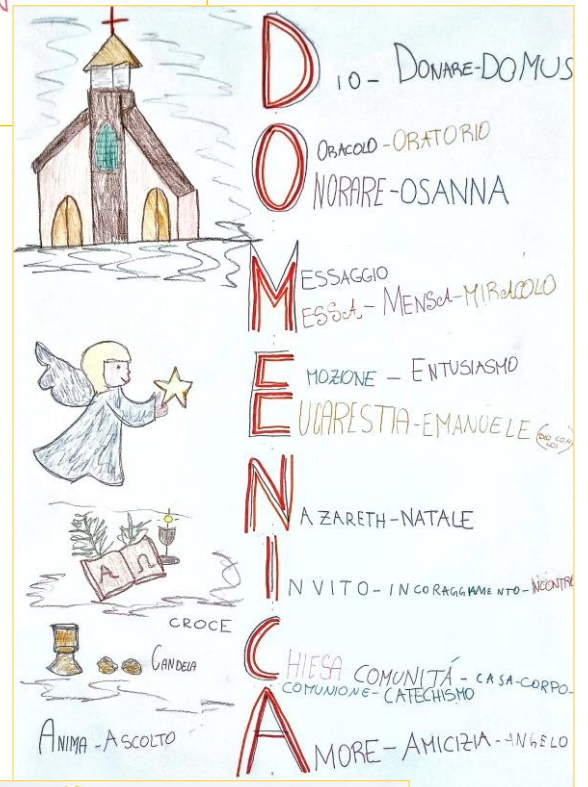 DIO - DONARE-DOMUS
ORACOLO - ORATORIO
ONORARE-OSANNA
MESSAGGIO
MESSA - MENSA-MIRACOLO
EMOZIONE - ENTUSIASMO
EUCARESTIA-EMANUELE (DIO CON NOI)
NAZARETH-NATALE
A Ω
INVITO-INCORAGGIAMENTO-INCONTRO
CROCE
CANDELA
CHIESA COMUNITÁ - CASA-CORPO-
COMUNIONE-CATECHISMO
ANIMA-ASCOLTO
AMORE-AMICIZIA-ANGELO